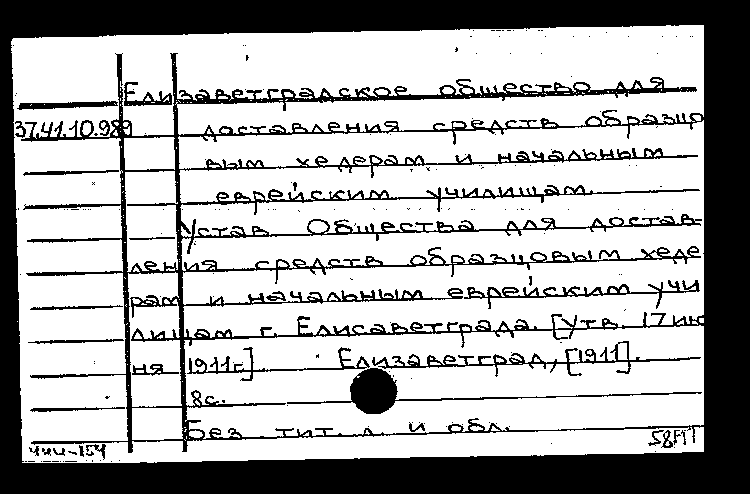 Елизаветградское общество для
37.41.10.989 доставления средств образцо
вым хедерам и начальным
еврейским училищам.
Устав Общества для достав-
ления средств образцовым хеде
рам и начальным еврейским учи
лищам г. Елисаветграда. [Утв. 17 ию
ня 1911г.] Елизаветград, [1911].
8с.
Без тит. л. и обл.